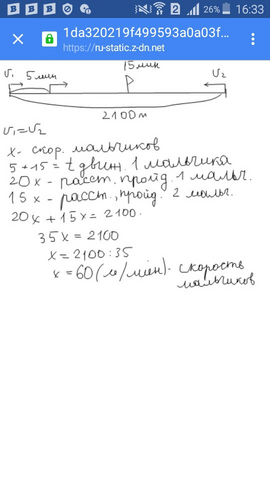 26% 16:33
1da320219f499593a0a03f...
https://ru-static.z-dn.net
15 мин
V₁ 5 мин V₂
2100 м
V₁=V₂
x - скор. мальчиков
5+15 = t движ. 1 мальчика
20x - расст. пройд. 1 мальч.
15x - расст., пройд. 2 мальч.
20x + 15x = 2100.
35x = 2100
x = 2100:35
x = 60 (м/мин) - скорость
мальчиков